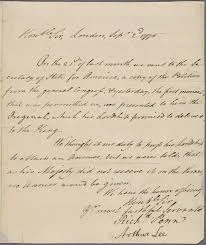 London, Sept. 2d 1775
On the 21st of last month we sent to the Se-
cretary of State for America, a copy of the Petition
from the general Congress, & yesterday, the first moment,
that was permitted us, we presented to him the
Original, which his Lordship promised to deliver
to the King.
We thought it our duty to press his Lordship
to obtain an answer, but we were told, that
as his Majesty did not receive it on the throne,
no answer would be given.
We have the honor of being
Sir,
faithful Servants
Richd. Penn
Arthur Lee